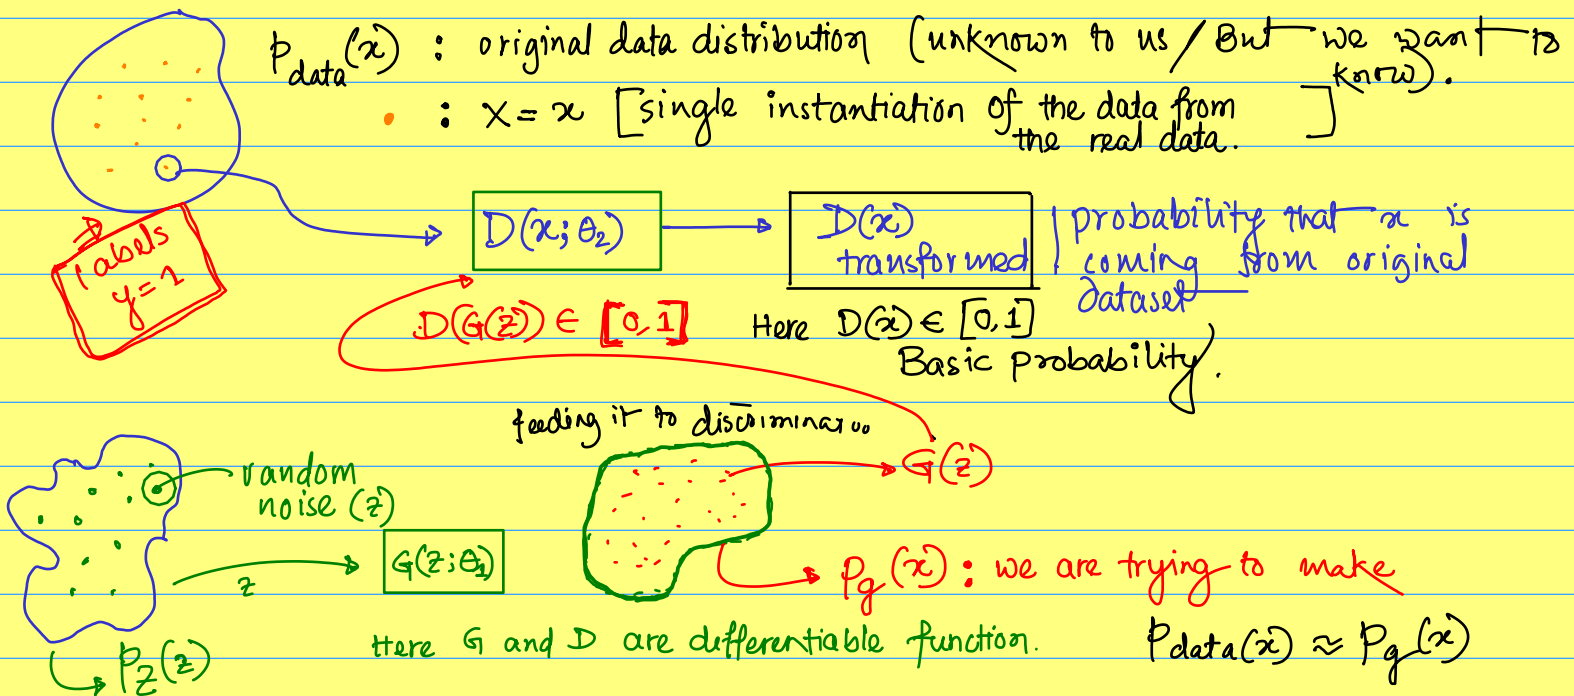 P_data(x) : original data distribution (unknown to us / But we want to
know).
: X = x [single instantiation of the data from
the real data. ]
labels
y=1
D(x; θ₂)
D(x)
transformed
probability that x is
coming from original
dataset
D(G(z)) ∈ [0,1]
Here D(x) ∈ [0,1]
Basic probability.
feeding it to
random
noise (z)
G(z)
z
G(z; θ₁)
P_g(x) : we are trying to make
P_data(x) ≈ P_g(x)
Here G and D are differentiable function.
P_Z(z)